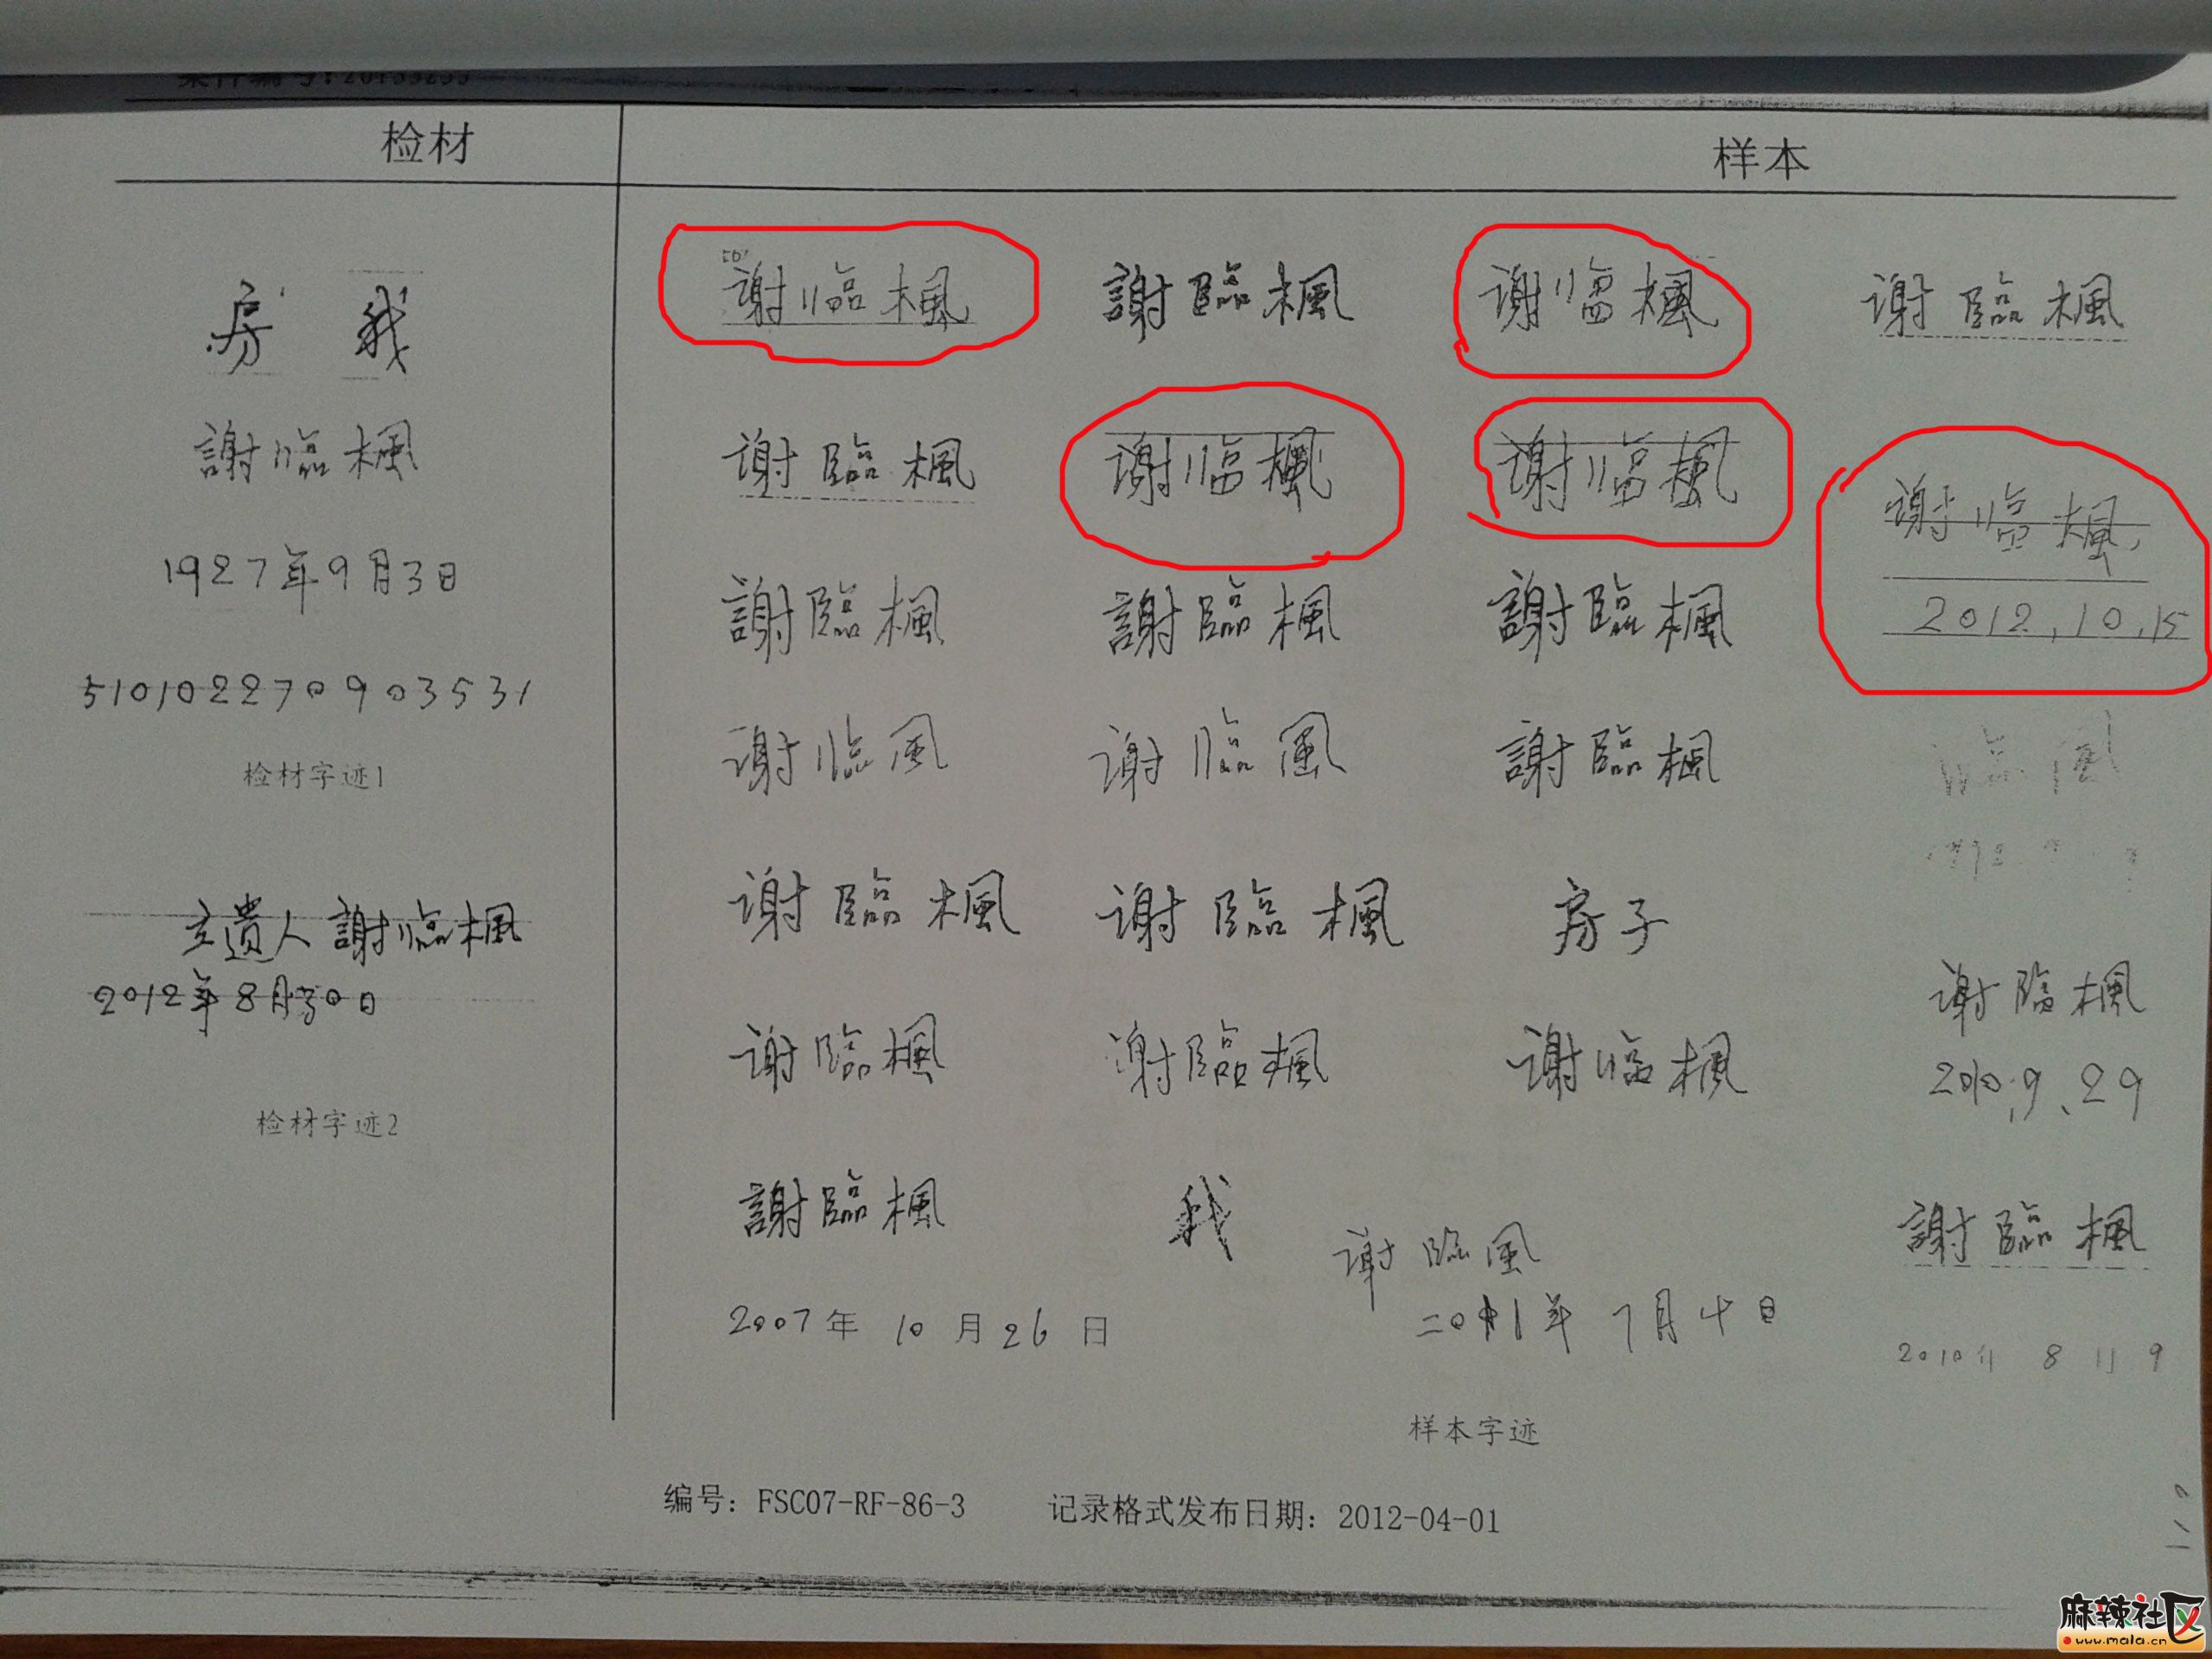 检材 样本
房 我 謝临楓 謝臨楓 谢临楓 谢臨楓
謝临楓 谢臨楓 谢临楓 谢临楓 谢临楓
2012.10.15
1927年9月3日 謝臨楓 謝臨楓 謝臨楓
510102270903531 谢临风 谢临風 謝臨楓
检材字迹1
立遗人謝临楓 谢臨楓 谢臨楓 房子
2012年8月30日 谢臨楓
2010.9.29
谢臨楓 谢臨楓 谢临楓
检材字迹2
謝臨楓 我 谢臨風 謝臨楓
2007年 10月26日 二011年 7月4日 2010年 8月9
样本字迹
编号：FSC07-RF-86-3 记录格式发布日期：2012-04-01
麻辣社区
www.mala.cn